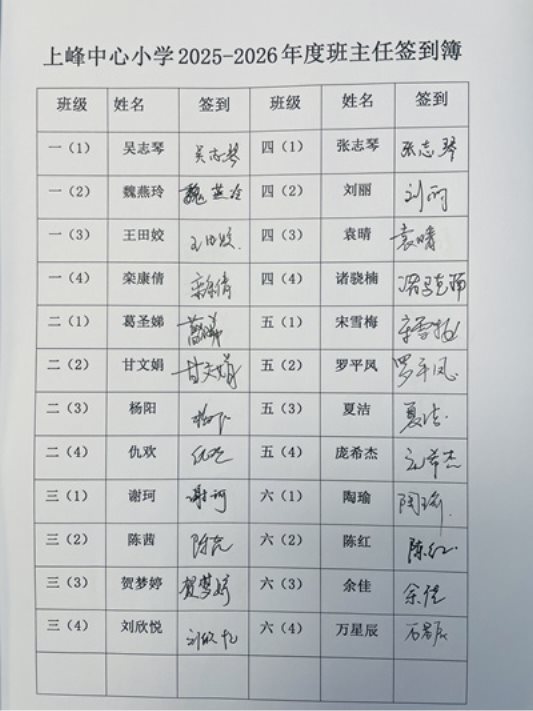 上峰中心小学2025-2026年度班主任签到簿
班级 姓名 签到 班级 姓名 签到
一（1） 吴志琴 吴志琴 四（1） 张志琴 张志琴
一（2） 魏燕玲 魏燕玲 四（2） 刘丽 刘丽
一（3） 王田姣 王田姣 四（3） 袁晴 袁晴
一（4） 栾康倩 栾康倩 四（4） 诸骁楠
二（1） 葛圣娣 五（1） 宋雪梅 宋雪梅
二（2） 甘文娟 甘文娟 五（2） 罗平凤 罗平凤
二（3） 杨阳 五（3） 夏洁 夏洁
二（4） 仇欢 仇欢 五（4） 庞希杰 庞希杰
三（1） 谢珂 谢珂 六（1） 陶瑜 陶瑜
三（2） 陈茜 陈茜 六（2） 陈红 陈红
三（3） 贺梦婷 贺梦婷 六（3） 余佳 余佳
三（4） 刘欣悦 刘欣悦 六（4） 万星辰